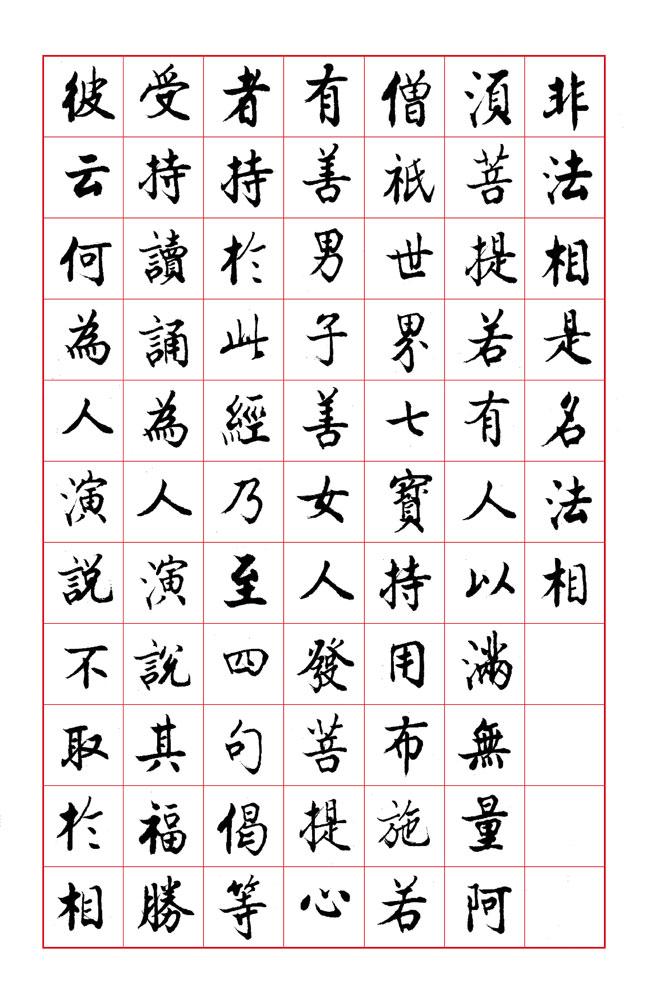 非法相是名法相
須菩提若有人以滿無量阿
僧祇世界七寶持用布施若
有善男子善女人發菩提心
者持於此經乃至四句偈等
受持讀誦為人演說其福勝
彼云何為人演說不取於相